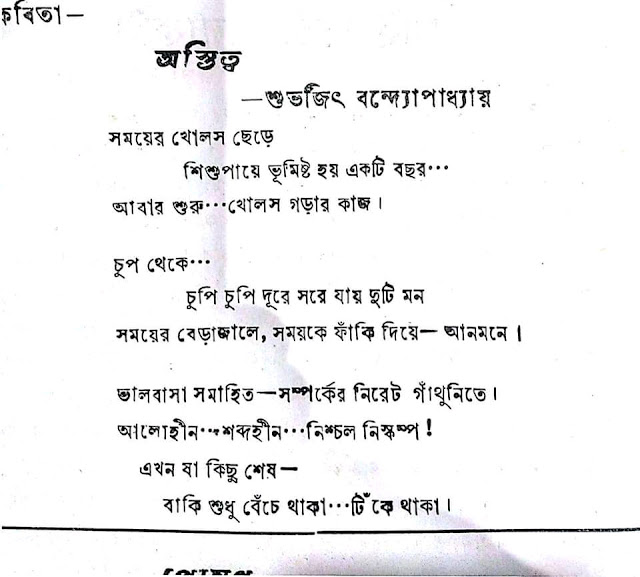 কবিতা—
অস্তিত্ব
—শুভজিৎ বন্দ্যোপাধ্যায়
সময়ের খোলস ছেড়ে
শিশুপায়ে ভূমিষ্ট হয় একটি বছর···
আবার শুরু···খোলস গড়ার কাজ।
চুপ থেকে···
চুপি চুপি দূরে সরে যায় দুটি মন
সময়ের বেড়াজালে, সময়কে ফাঁকি দিয়ে— আনমনে।
ভালবাসা সমাহিত—সম্পর্কের নিরেট গাঁথুনিতে।
আলোহীন···শব্দহীন···নিশ্চল নিস্কম্প!
এখন যা কিছু শেষ—
বাকি শুধু বেঁচে থাকা···টিঁকে থাকা।